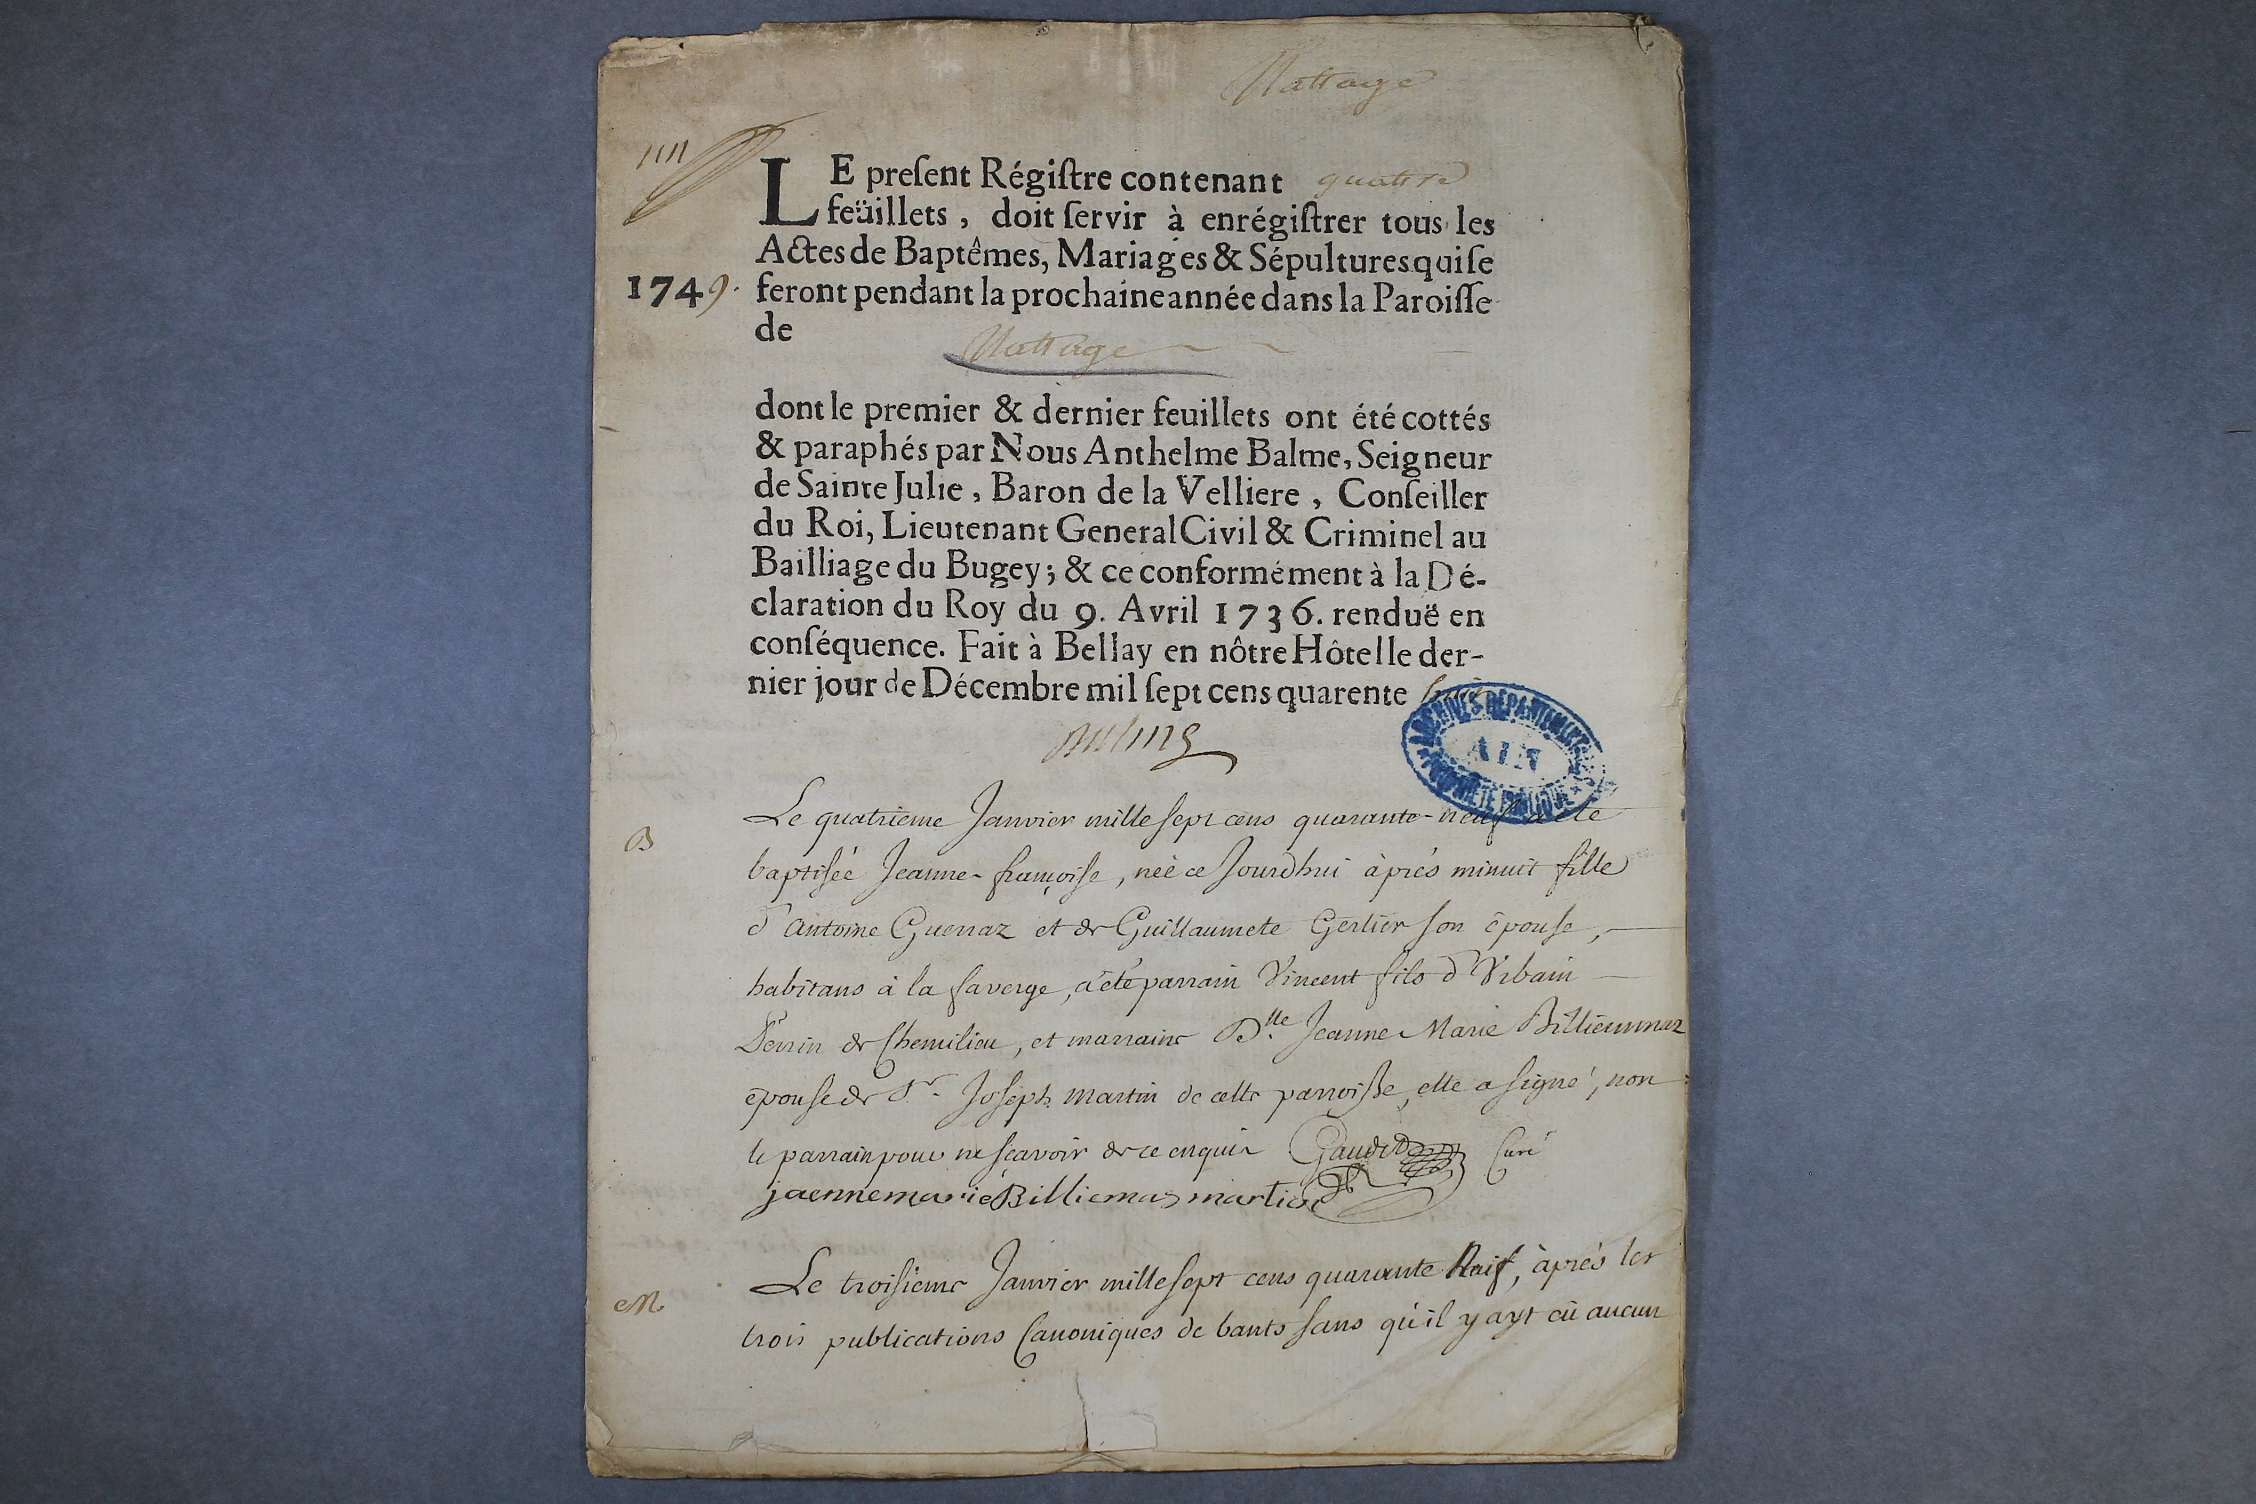 Nattage
1111
LE preſent Régiſtre contenant quatre
feüillets, doit ſervir à enrégiſtrer tous les
Actes de Baptêmes, Mariages & Sépultures qui ſe
1749. feront pendant la prochaine année dans la Paroiſſe
de
Nattage
dont le premier & dernier feuillets ont été cottés
& paraphés par Nous Anthelme Balme, Seigneur
de Sainte Julie, Baron de la Velliere, Conſeiller
du Roi, Lieutenant General Civil & Criminel au
Bailliage du Bugey; & ce conformément à la Dé-
claration du Roy du 9. Avril 1736. renduë en
conſéquence. Fait à Bellay en nôtre Hôtel le der-
nier jour de Décembre mil ſept cens quarente huit
ARCHIVES DÉPARTEMENTALES
AIN
PROPRIÉTÉ PUBLIQUE
Le quatrieme Janvier mille sept cens quarante-neuf a été
B
baptisée Jeanne-françoise, née ce Jourdhui àprés minuit fille
d'Antoine Guerraz et de Guillaumete Gerlier son épouse,
habitans à la faverge, a été parrain Vincent fils d'Urbain
Perrin de Chemilieu, et marraine Dlle. Jeanne Marie Billiemmaz
épouse de Sr. Joseph Martin de cette parroisse, elle a signé, non
le parrain pour ne sçavoir de ce enquis Gaudet Curé
jaennemarie Billiemas martin
Le troisieme Janvier mille sept cens quarante Naif, àprés les
M
trois publications Canoniques de bants sans qu'il y ayt eû aucun